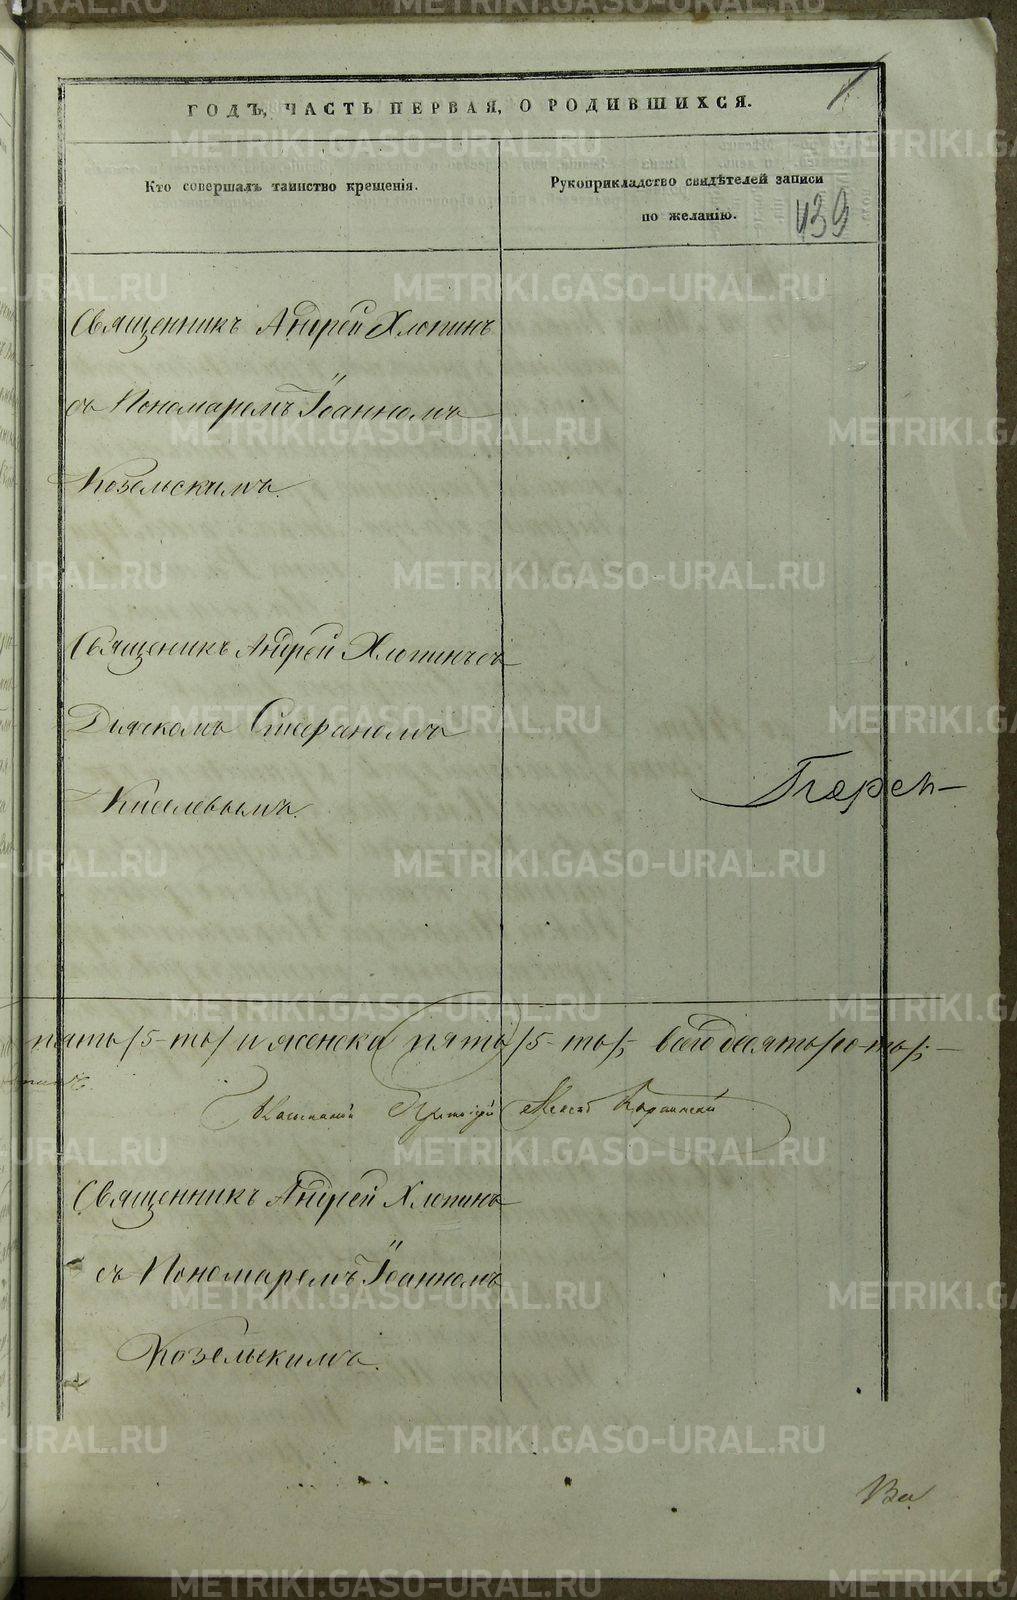 ГОДЪ, ЧАСТЬ ПЕРВАЯ, О РОДИВШИХСЯ.
Кто совершалъ таинство крещенія.
Рукоприкладство свидѣтелей записи
по желанію.
439
Священникъ Андрей Хлопинъ
съ Пономаремъ Іоанномъ
Козельскимъ.
Священикъ Андрей Хлопинъ съ
Дьячкомъ Стефаномъ
Киселевымъ.
пять /5-ть/ и женска пять /5-ть/, всего десять /10-ть/;
Священникъ Андрей Хлопинъ
съ Пономаремъ Іоанномъ
Козельскимъ.
METRIKI.GASO-URAL.RU